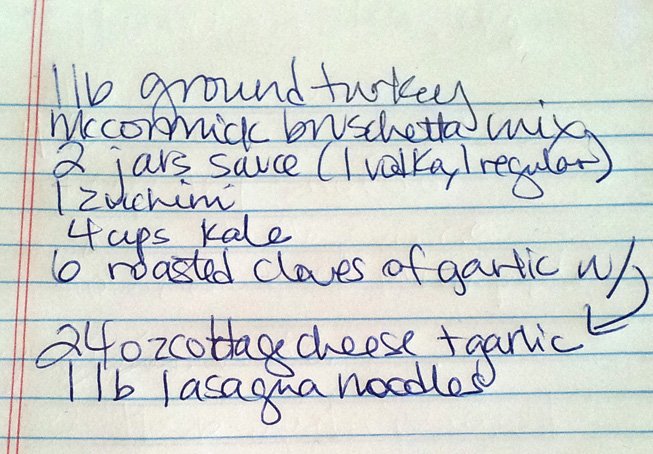 1 lb ground turkey
McCormick bruschetta mix
2 jars sauce (1 vodka, 1 regular)
1 zucchini
4 cups kale
6 roasted cloves of garlic w/
24 oz cottage cheese + garlic
1 lb lasagna noodles